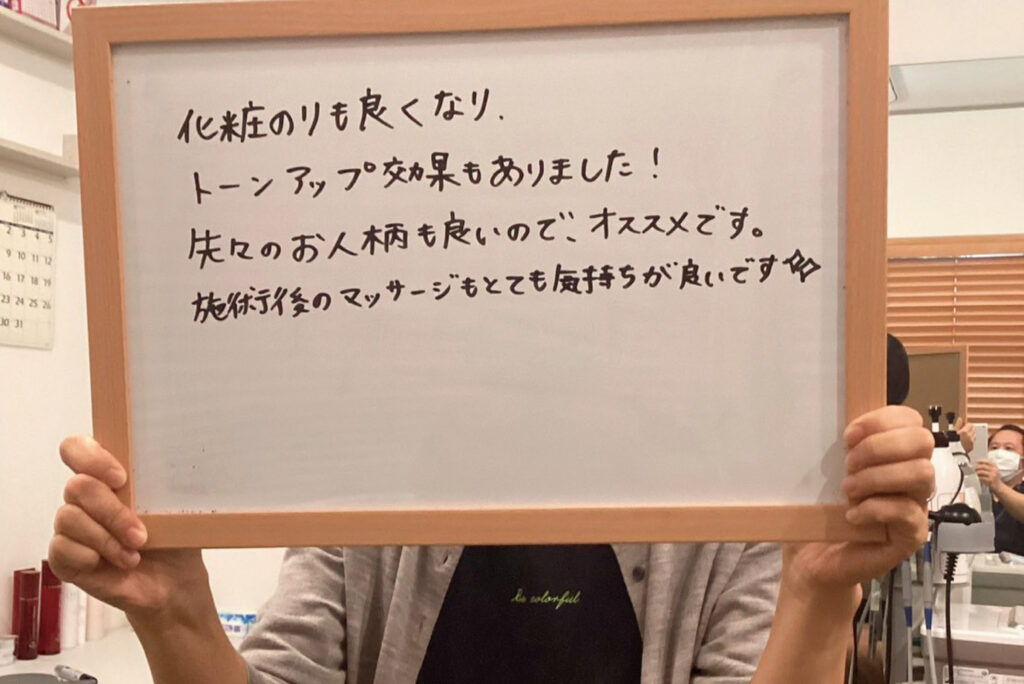 化粧のりも良くなり、
トーンアップ効果もありました！
先々のお人柄も良いので、オススメです。
施術後のマッサージもとても気持ちが良いです☆
be colorful
2 3 4 5
9 10 11 12
16 17 18 19
23 24 25 26
30 31